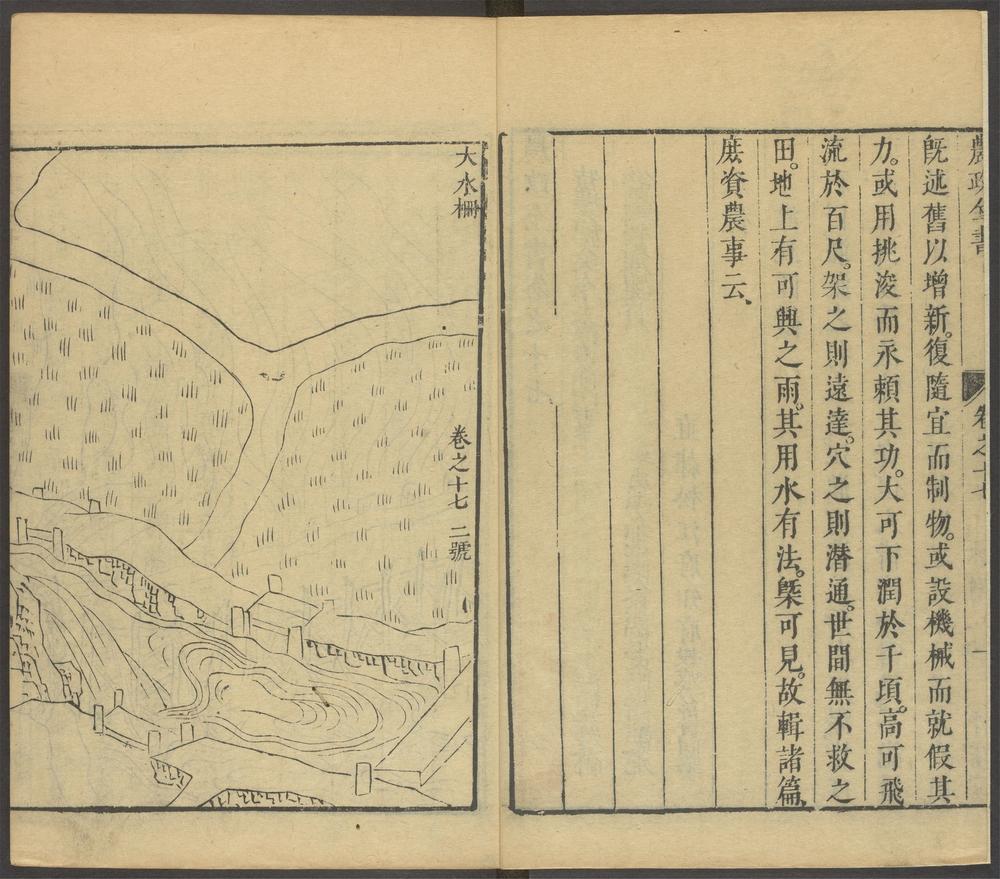 農政全書
卷之十七
一
既述舊以增新。復隨宜而制物。或設機械而就假其
力。或用挑浚而永頼其功。大可下潤於千頃。高可飛
流於百尺。架之則遠達。穴之則潛通。世間無不救之
田。地上有可興之雨。其用水有法。槩可見。故輯諸篇、
庶資農事云、
大水柵
卷之十七 二號